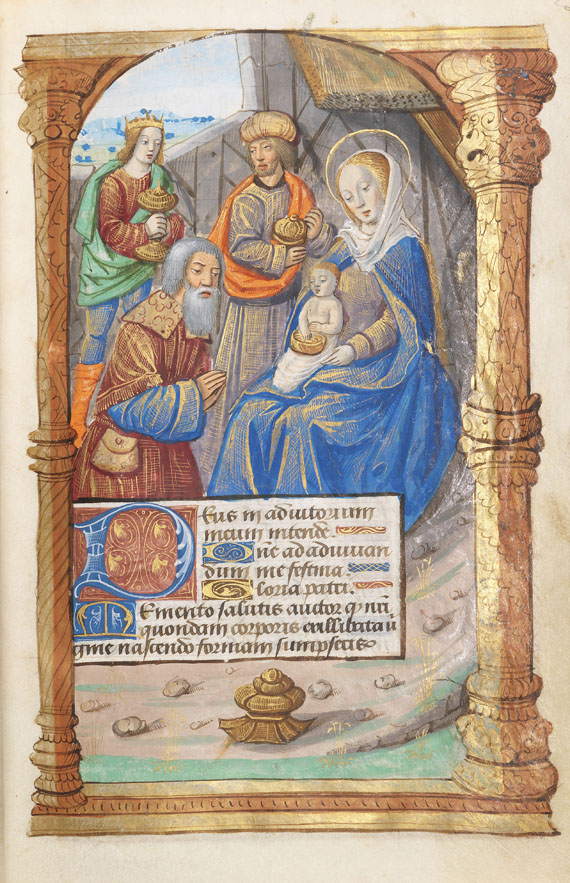 Deus in adiutorium
meum intende.
Dne ad adiuuan
dum me festina.
Gloria patri.
Memento salutis auctor q nri
quondam corporis ex illibata u
gine nascendo formam sumpseris